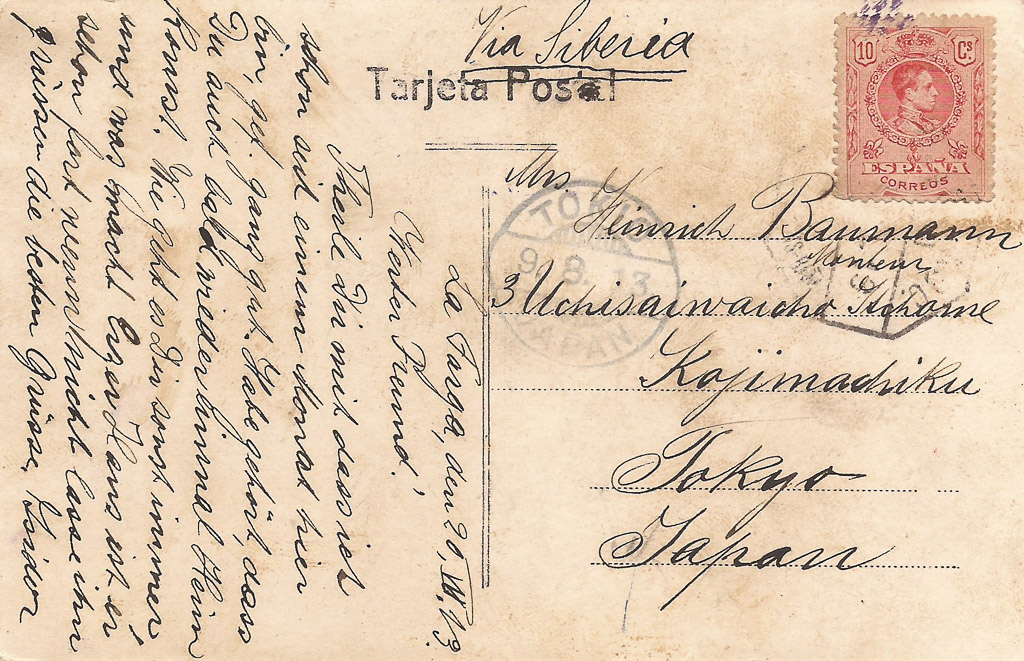 Via Siberia
Tarjeta Postal
10 Cs
ESPAÑA
CORREOS
TOKIO
9. 8. 13
JAPAN
Mr.
Heinrich Baumann
Monteur
3 Uchisaiwaicho Itchome
Kojimachiku
Tokyo
Japan
La Farga, den 20. VII. 13.
Werter Freund!
Theile Dir mit dass ich
schon seit einem Monat hier
bin, gef. ganz gut. Habe gehört, dass
Du auch bald wieder einmal Heim
komst. Wie geht es Dir sonst immer
und was macht Engr. Hans ist er
schon fort wenn nicht lasse ihn
grüssen die besten Grüsse, Isidor